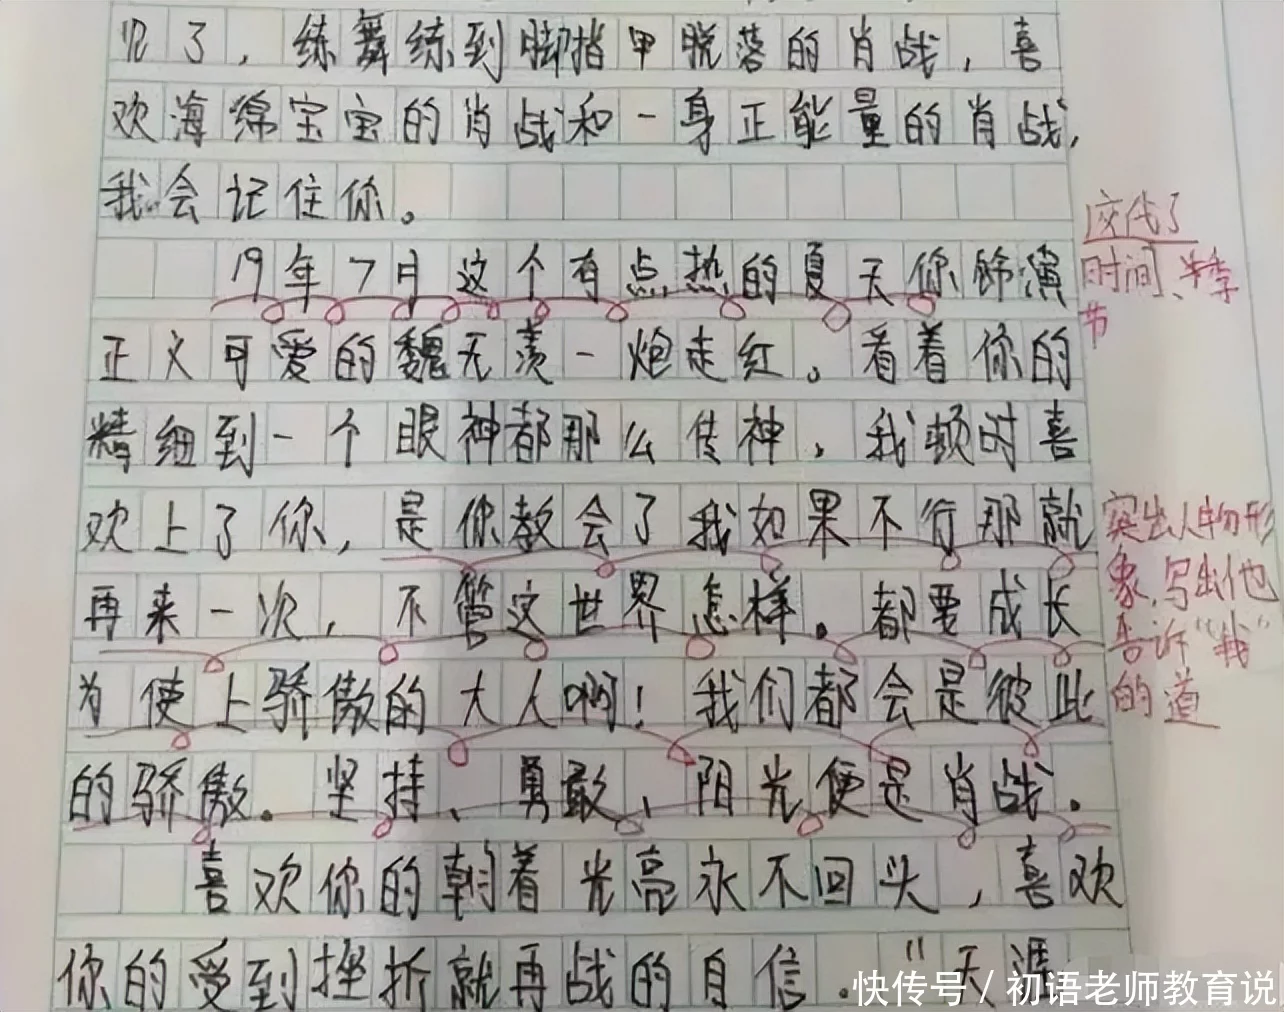 了，练舞练到脚指甲脱落的肖战，喜
欢海绵宝宝的肖战和一身正能量的肖战，
我会记住你。
19年7月这个有点热的夏天你饰演
正义可爱的魏无羡一炮走红。看着你的
精细到一个眼神都那么传神，我顿时喜
欢上了你，是你教会了我如果不行那就
再来一次，不管这世界怎样。都要成长
为使上骄傲的大人啊！我们都会是彼此
的骄傲。坚持、勇敢、阳光便是肖战.
喜欢你的朝着光亮永不回头，喜欢
你的受到挫折就再战的自信.“天涯
交代了
时间、季
节
突出人物形
象，写出他
告诉“我”
的道
快传号/初语老师教育说